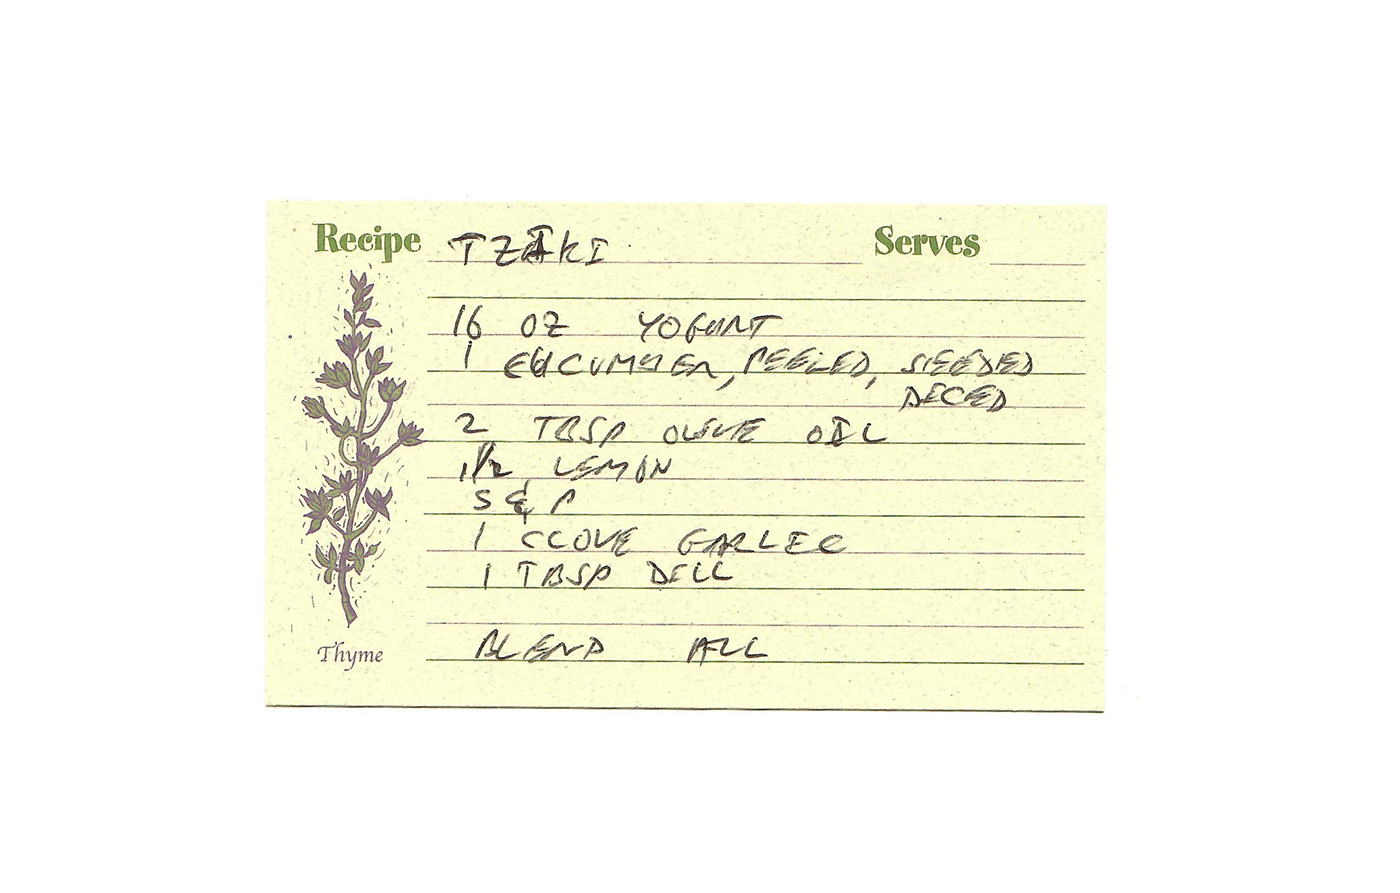 Recipe TZAKI Serves
16 OZ YOGURT
1 CUCUMBER, PEELED, SEEDED
DICED
2 TBSP OLIVE OIL
1/2 LEMON
S & P
1 CLOVE GARLIC
1 TBSP DILL
BLEND ALL
Thyme